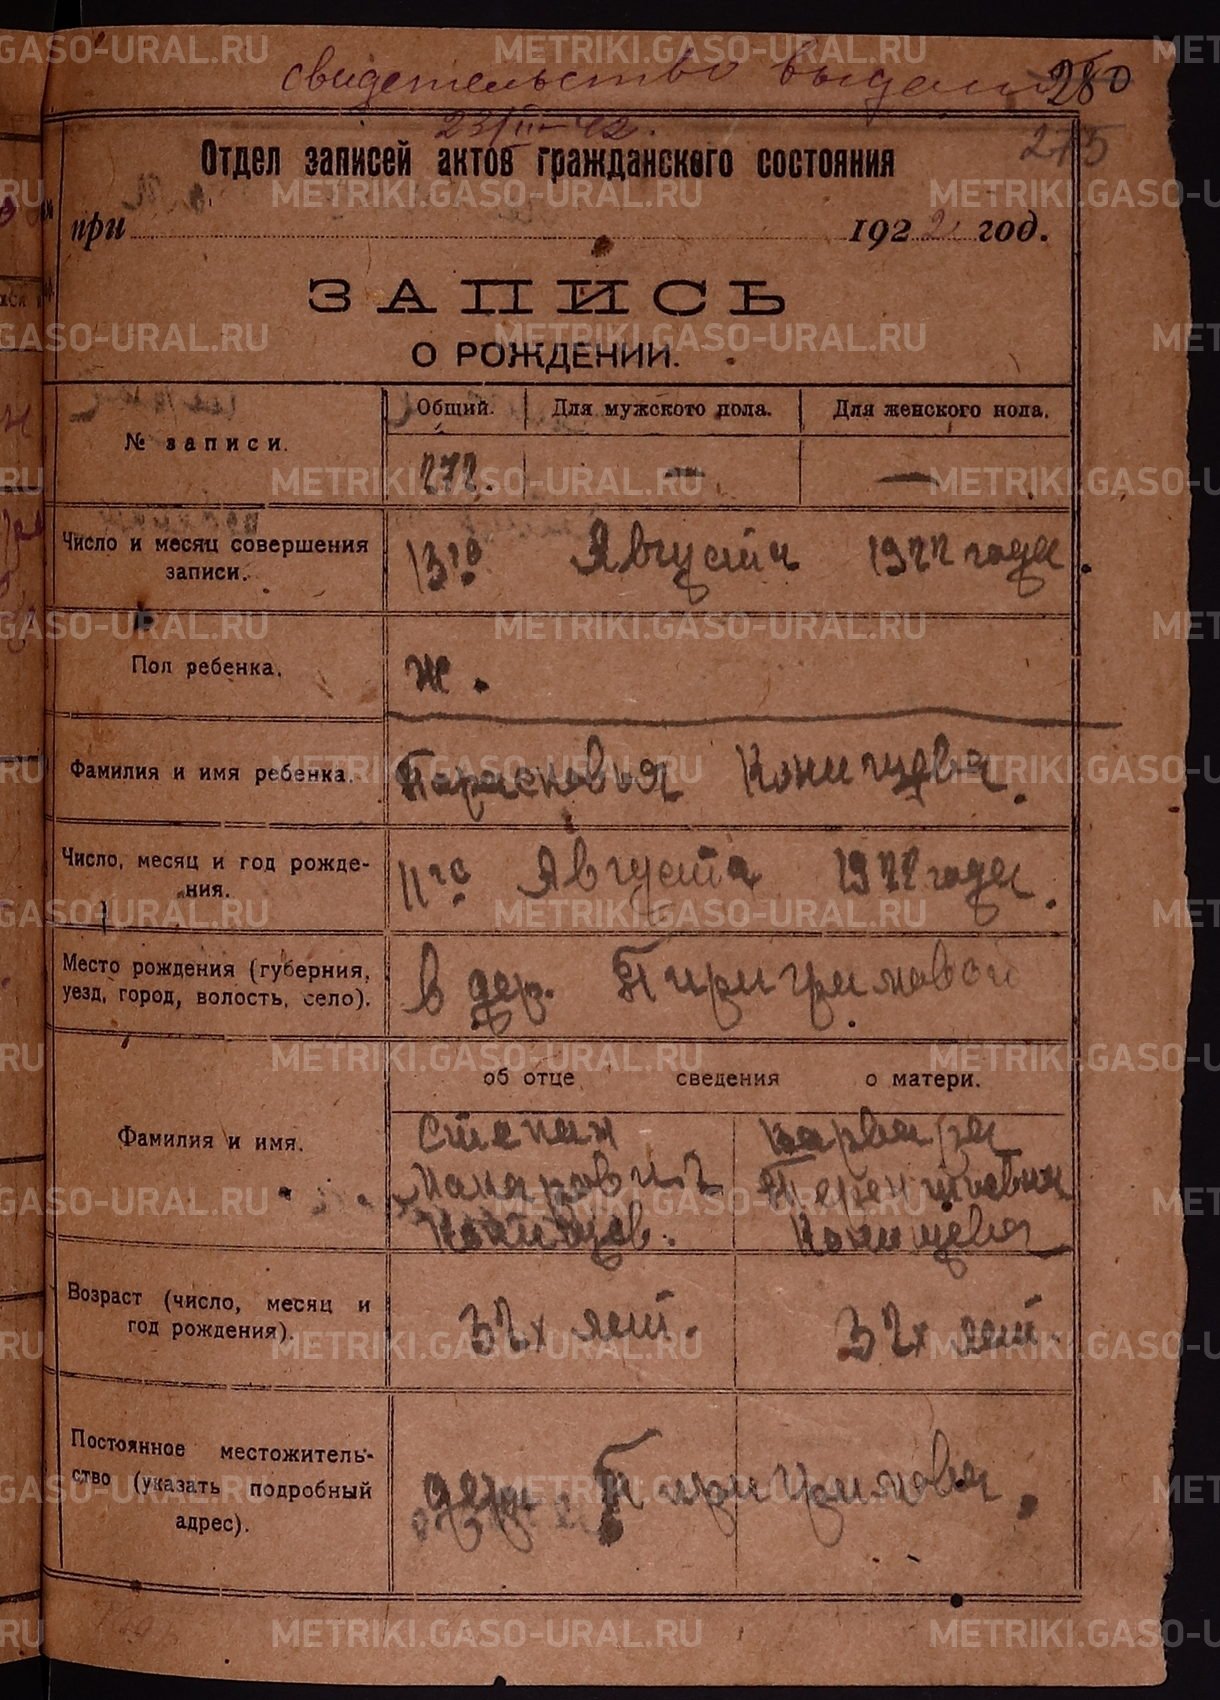 свидетельство выдано 280
23/III-42.
275
Отдел записей актов гражданского состояния
при 1922 год.
ЗАПИСЬ
О РОЖДЕНИИ.
№ записи.
Общий. Для мужского пола. Для женского пола.
272. — —
Число и месяц совершения записи.
13го Августа 1922 года.
Пол ребенка.
ж.
Фамилия и имя ребенка.
Парасковья Конищева.
Число, месяц и год рожде-
ния.
11го Августа 1922 года.
Место рождения (губерния,
уезд, город, волость, село).
в дер.
об отце сведения о матери.
Фамилия и имя.
Степан
Макарович
Конищев.
Варвара
Терентьевна
Конищева
Возраст (число, месяц и
год рождения).
32х лет. 32х лет.
Постоянное местожитель-
ство (указать подробный
адрес).
дер.
METRIKI.GASO-URAL.RU